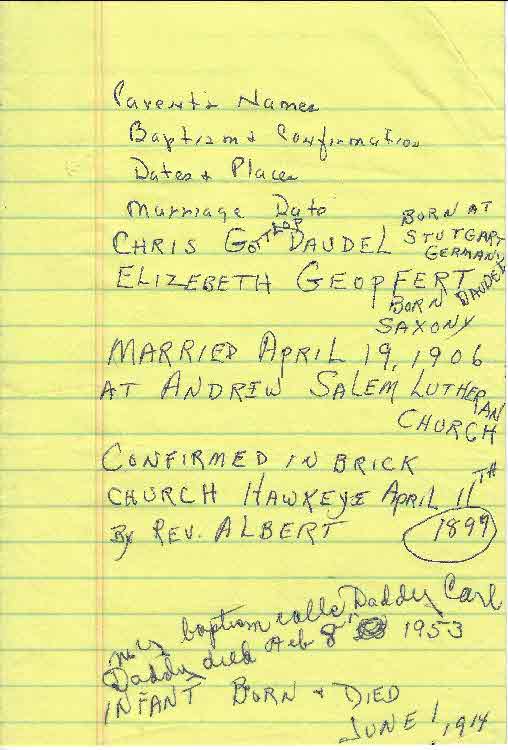 Parent's Names
Baptism & Confirmation
Dates & Places
Marriage Date
CHRIS GOTTLOP DAUDEL BORN AT STUTGART GERMANY
ELIZEBETH GEOPFERT DAUDEL
BORN SAXONY
MARRIED APRIL 19, 1906
AT ANDRIW SALEM LUTHERAN
CHURCH
CONFIRMED IN BRICK
CHURCH HAWKEYE APRIL 11TH
By REV. ALBERT 1899
baptism calls Daddy Carl
Daddy died Feb 8 1953
INFANT BORN & DIED
JUNE 1, 1914